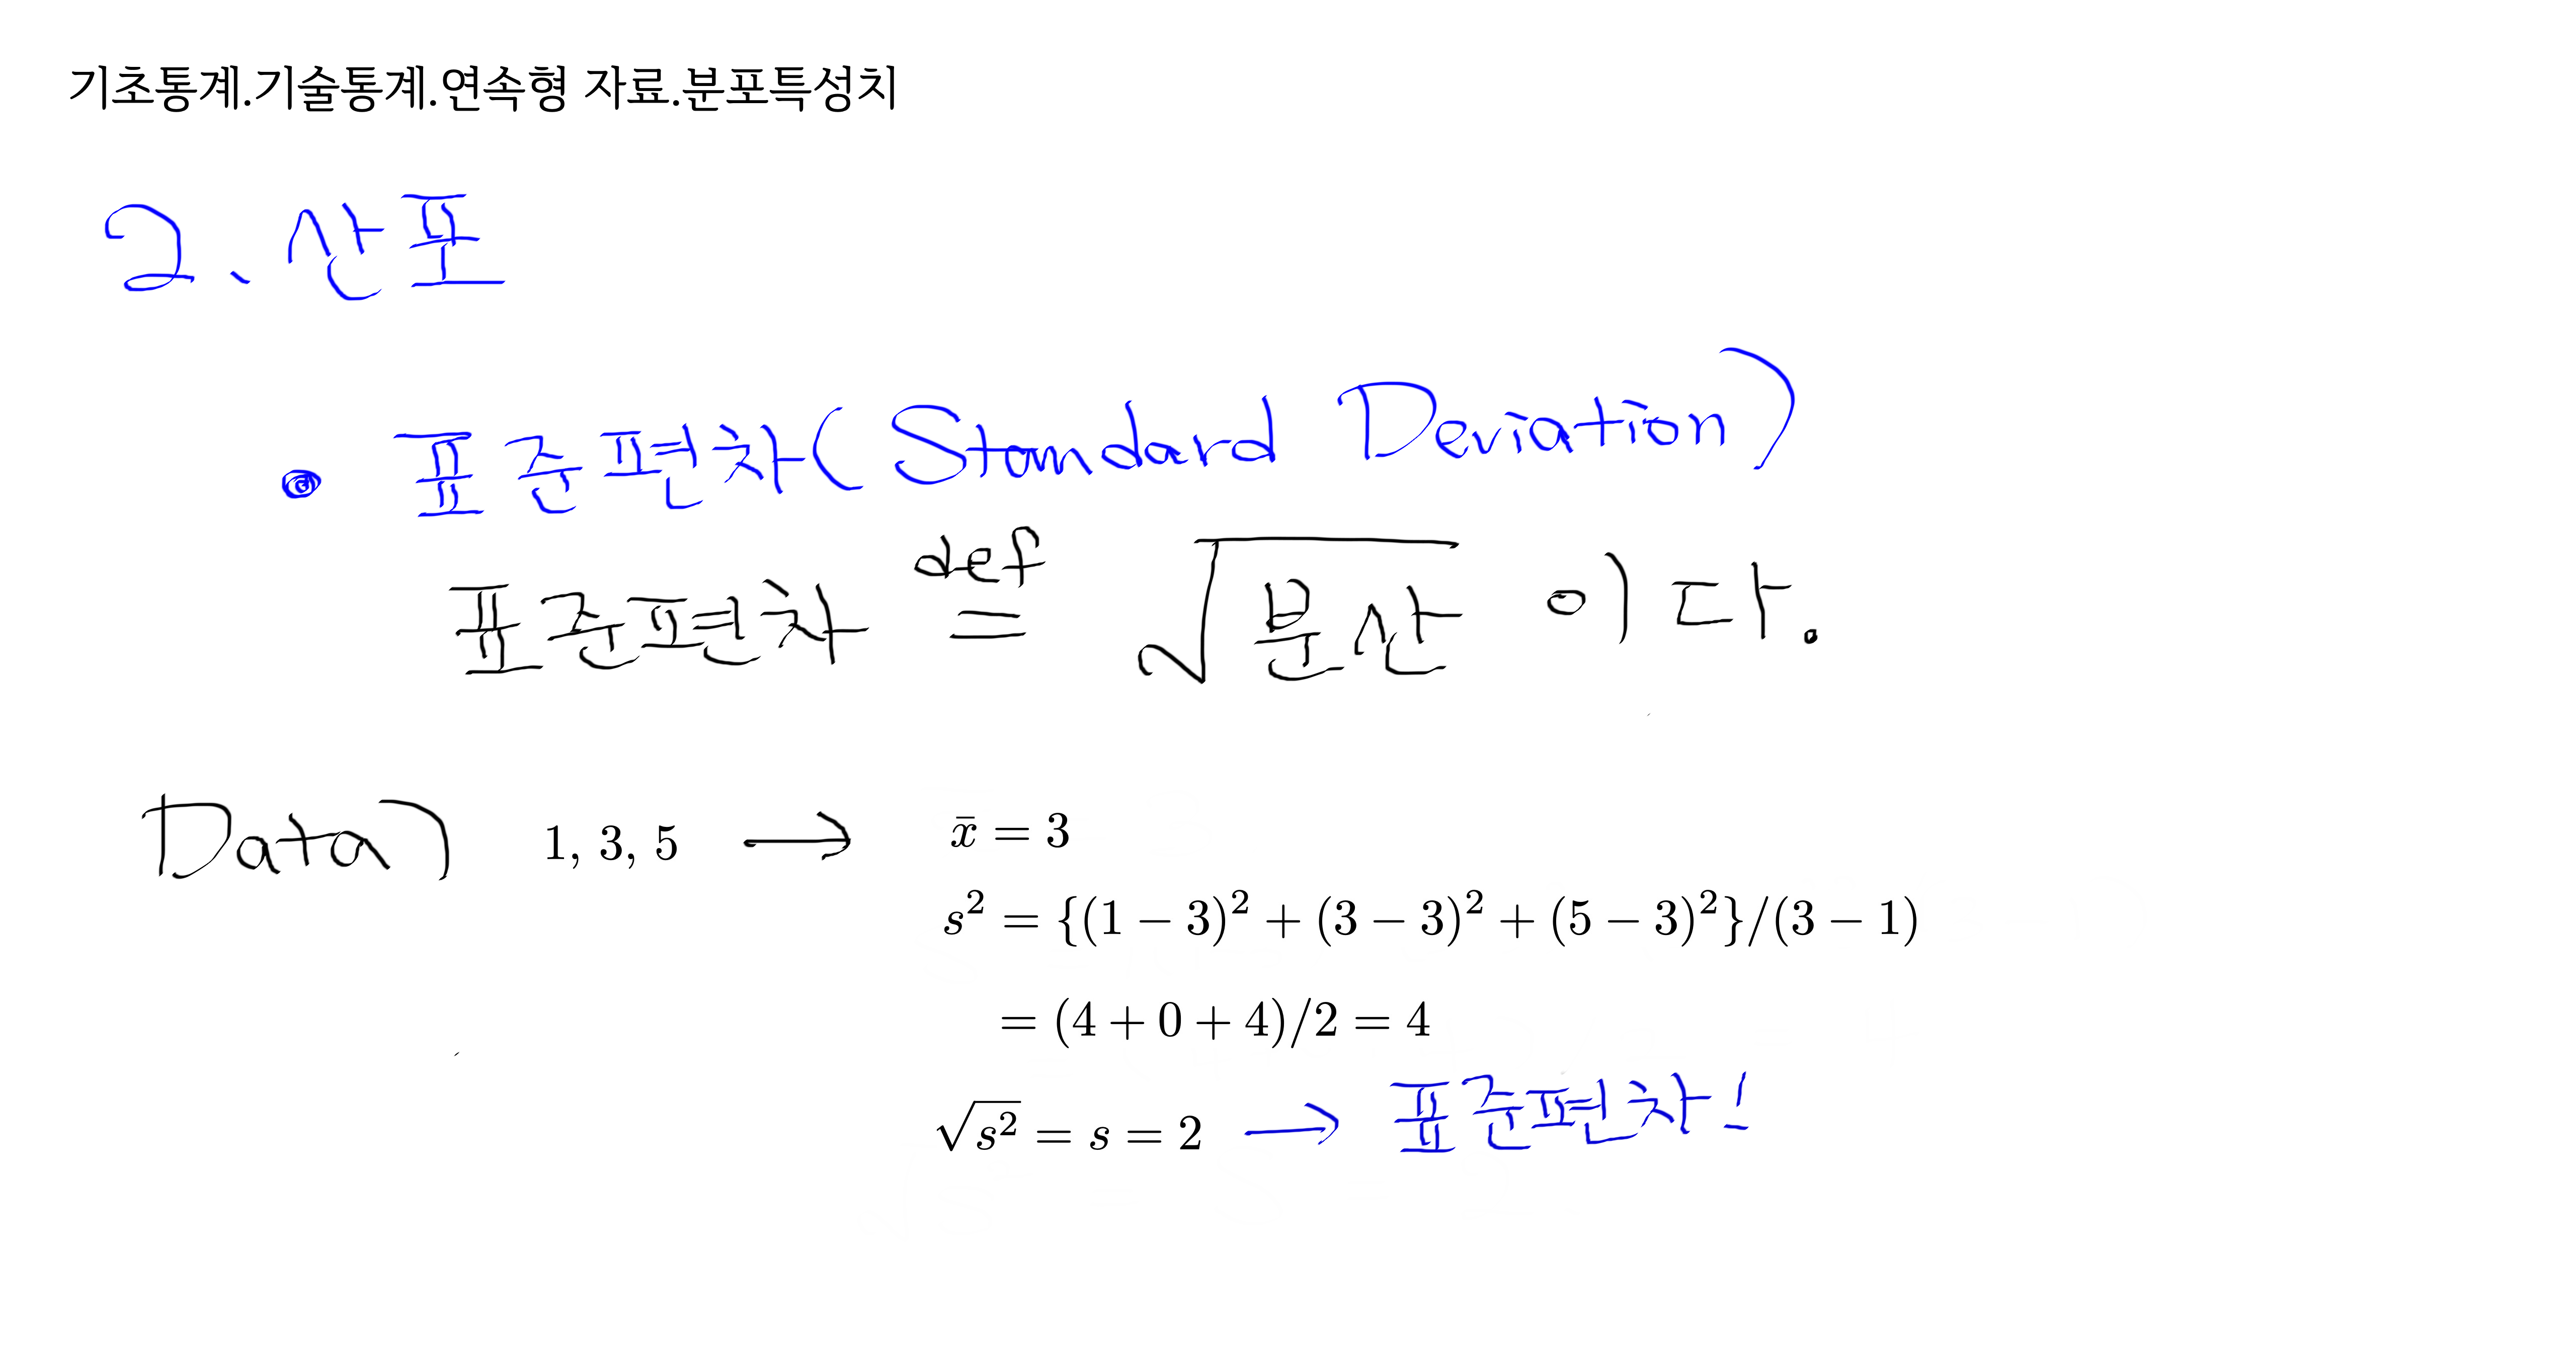 기초통계.기술통계.연속형 자료.분포특성치
2. 산포
• 표준편차(Standard Deviation)
표준편차 def = √분산 이다.
Data) 1, 3, 5 → x̄ = 3
s² = {(1 − 3)² + (3 − 3)² + (5 − 3)²}/(3 − 1)
= (4 + 0 + 4)/2 = 4
√s² = s = 2 → 표준편차!